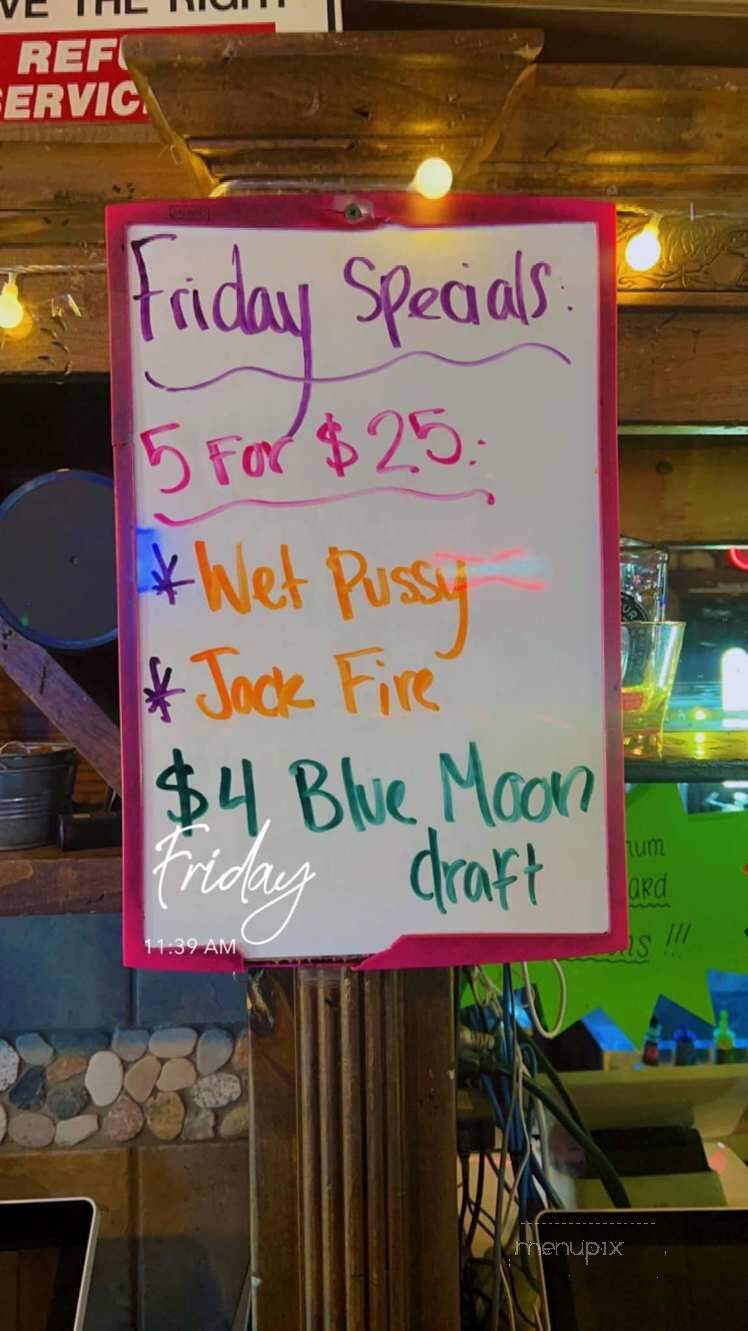 VE THE RIGHT
REFU
SERVIC
Friday Specials:
5 For $25:
* Wet Pussy
* Jack Fire
$4 Blue Moon
draft
Friday
11:39 AM
num
ARD
ns !!!
menupix